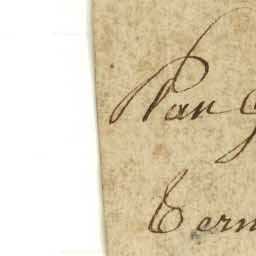 Van
Cern